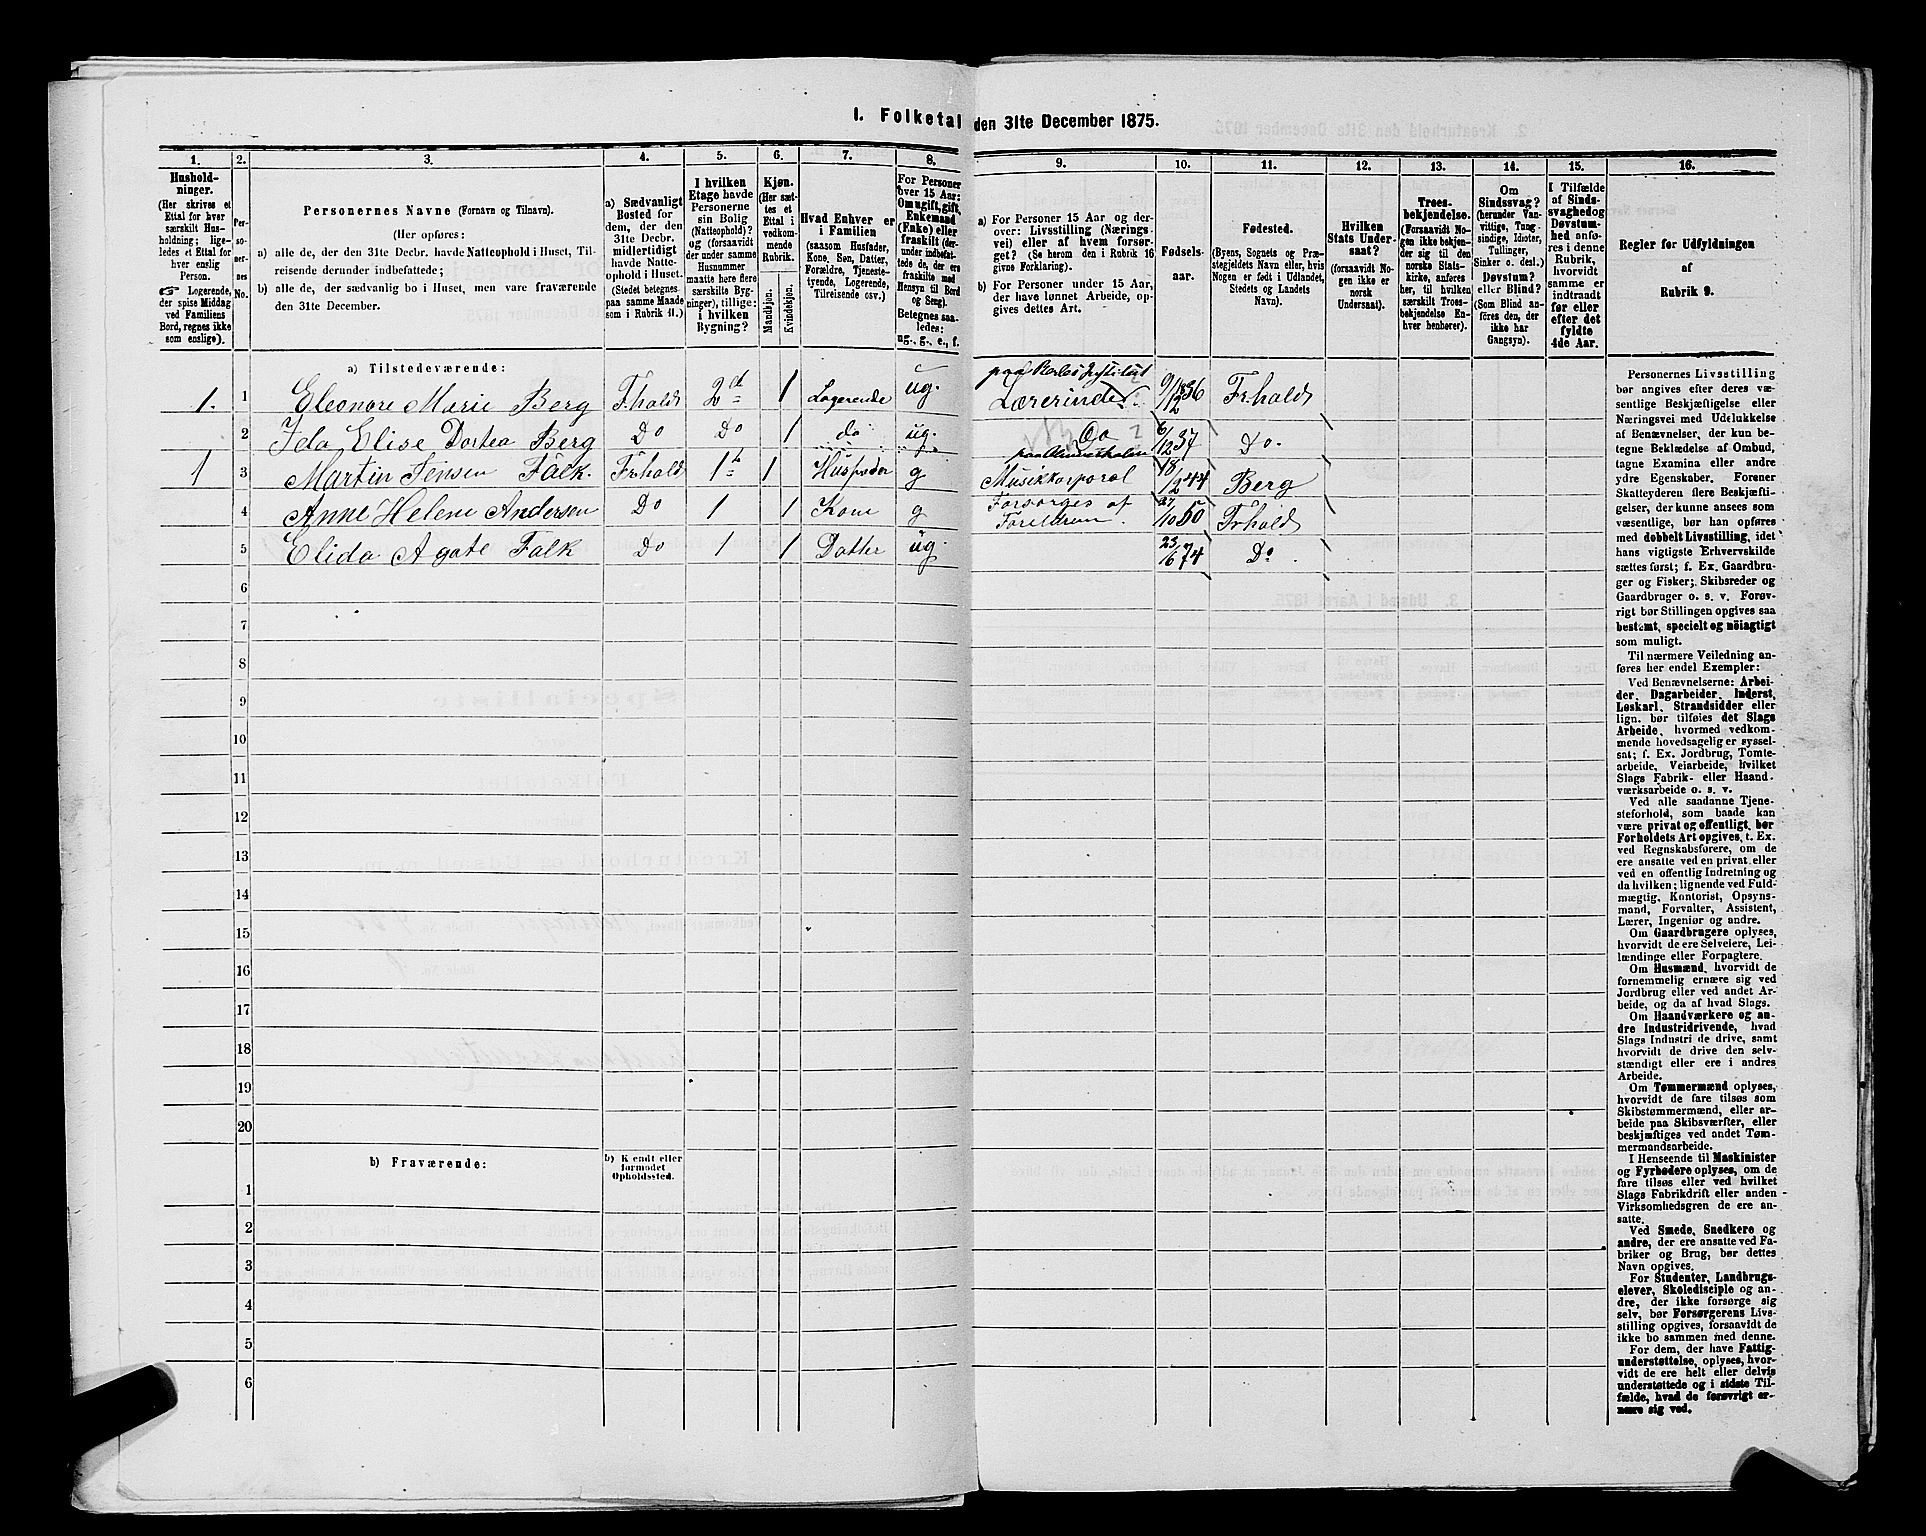 1. Folketal den 31te December 1875.
1. 2. 3. 4. 5. 6. 7. 8. 9. 10. 11. 12. 13. 14. 15. 16.
Hushold-
ninger.
(Her skrives et
Ettal for hver
særskilt Hus-
holdning; lige-
ledes et Ettal for
hver enslig
Person.
☞ Logerende,
der spise Middag
ved Familiens
Bord, regnes ikke
som enslige).
Per-
so-
ner-
nes
No.
Personernes Navne (Fornavn og Tilnavn).
(Her opføres:
a) alle de, der den 31te Decbr. havde Natteophold i Huset, Til-
reisende derunder indbefattede;
b) alle de, der sædvanlig bo i Huset, men vare fraværende
den 31te December.
a) Sædvanligt
Bosted for
dem, der den
31te Decbr.
midlertidigt
havde Natte-
ophold i Huset.
(Stedet betegnes
paa samme Maade
som i Rubrik 11.)
I hvilken
Etage havde
Personerne
sin Bolig
(Natteophold)?
og (forsaavidt
der under samme
Husnummer
maatte høre flere
særskilte Byg-
ninger), tillige:
i hvilken
Bygning?
Kjøn.
(Her sæt-
tes et
Ettal i
vedkom-
mende
Rubrik.
Mandkjøn.
Kvindekjøn.
Hvad Enhver er
i Familien
(saasom Husfader,
Kone, Søn, Datter,
Forældre, Tjeneste-
tyende, Logerende,
Tilreisende osv.)
For Personer
over 15 Aar:
Om ugift, gift,
Enkemand
(Enke) eller
fraskilt (der-
under indbefat-
tede de, der ere
fraskilte med
Hensyn til Bord
og Seng).
Betegnes saa-
ledes:
ug., g., e., f.
a) For Personer 15 Aar og der-
over: Livsstilling (Nærings-
vei) eller af hvem forsør-
get? (Se herom den i Rubrik 16
givne Forklaring).
b) For Personer under 15 Aar,
der have lønnet Arbeide, op-
gives dettes Art.
Fødsels-
aar.
Fødested.
(Byens, Sognets og Præ-
stegjeldets Navn eller, hvis
Nogen er født i Udlandet,
Stedets og Landets
Navn).
Hvilken
Stats Under-
saat?
(forsaavidt No-
gen ikke er
norsk
Undersaat).
Troes-
bekjendelse.
(Forsaavidt No-
gen ikke beken-
der sig til den
norske Stats-
kirke, anføres
her, til hvilken
særskilt Troes-
bekjendelse En-
hver henhører).
Om
Sindssvag?
(herunder Van-
vittige, Tung-
sindige, Idioter,
Tullinger,
Sinker o. desl.)
Døvstum?
eller Blind?
(Som Blind an-
føres den, der
ikke har
Gangsyn).
I Tilfælde
af Sinds-
svaghedog
Døvstum-
hed anfø-
res i denne
Rubrik,
hvorvidt
samme er
indtraadt
før eller
efter det
fyldte
4de Aar.
Regler for Udfyldningen
af
Rubrik 9.
a) Tilstedeværende:
paa Institut
1. 1 Eleonore Marie Berg F.hald 2d 1 Logerende ug. Lærerinde 9/12 1836 Fr.hald
2 Ida Elise Dortea Berg Do Do 1 do ug. Do 6/12 37 Do.
1 3 Martin Jensen Falk. Frhald 1t 1 Husfader g Musikkorporal 18/2 44 Berg
4 Anne Helene Andersen Do 1 1 Kone g Forsørges af 27/10 50 Frhald
Foreldrene.
5 Elida Agate Falk Do 1 1 Datter ug. 23/6 74 Do.
6
7
8
9
10
11
12
13
14
15
16
17
18
19
20
b) Fraværende: b) Kjendt eller
formodet
Opholdssted.
1
2
3
4
5
6
Personernes Livsstilling
bør angives efter deres væ-
sentlige Beskjæftigelse eller
Næringsvei med Udelukkelse
af Benævnelser, der kun be-
tegne Beklædelse af Ombud,
tagne Examina eller andre
ydre Egenskaber. Forener
Skatteyderen flere Beskjæfti-
gelser, der kunne ansees som
væsentlige, bør han opføres
med dobbelt Livsstilling, idet
hans vigtigste Erhvervskilde
sættes først; f. Ex. Gaardbru-
ger og Fisker; Skibsreder og
Gaardbruger o. s. v. Forøv-
rigt bør Stillingen opgives saa
bestemt, specielt og nöiagtigt
som muligt.
Til nærmere Veiledning an-
føres her endel Exempler:
Ved Benævnelserne: Arbei-
der, Dagarbeider, Inderst,
Løskarl, Strandsidder eller
lign. bør tilføies det Slags
Arbeide, hvormed vedkom-
mende hovedsagelig er syssel-
sat; f. Ex. Jordbrug, Tomte-
arbeide, Veiarbeide, hvilket
Slags Fabrik- eller Haand-
værksarbeide o. s. v.
Ved alle saadanne Tjene-
steforhold, som baade kan
være privat og offentligt, bør
Forholdets Art opgives, t. Ex.
ved Regnskabsførere, om de
ere ansatte ved en privat eller
ved en offentlig Indretning og
da hvilken; lignende ved Fuld-
mægtig, Kontorist, Opsyns-
mand, Forvalter, Assistent,
Lærer, Ingeniør og andre.
Om Gaardbrugere oplyses,
hvorvidt de ere Selveiere, Lei-
lændinge eller Forpagtere.
Om Husmænd, hvorvidt de
fornemmelig ernære sig ved
Jordbrug eller ved andet Ar-
beide, og da af hvad Slags.
Om Haandværkere og an-
dre Industridrivende, hvad
Slags Industri de drive, samt
hvorvidt de drive den selv-
stændigt eller ere i andres
Arbeide.
Om Tømmermænd oplyses,
hvorvidt de fare tilsøs som
Skibstømmermænd, eller ar-
beide paa Skibsværfter, eller
beskjæftiges ved andet Tøm-
mermandsarbeide.
I Henseende til Maskinister
og Fyrbødere oplyses, om de
fare tilsøs eller ved hvilket
Slags Fabrikdrift eller anden
Virksomhedsgren de ere an-
satte.
Ved Smede, Snedkere og
andre, der ere ansatte ved Fa-
briker og Brug, bør dettes
Navn opgives.
For Studenter, Landbrugs-
elever, Skoledisciple og an-
dre, der ikke forsørge sig
selv, bør Forsørgerens Livs-
stilling opgives, forsaavidt de
ikke bo sammen med denne.
For dem, der have Fattig-
understøttelse, oplyses, hvor-
vidt de ere helt eller delvis
understøttede og i sidste Til-
fælde, hvad de forøvrigt er-
nære sig ved.